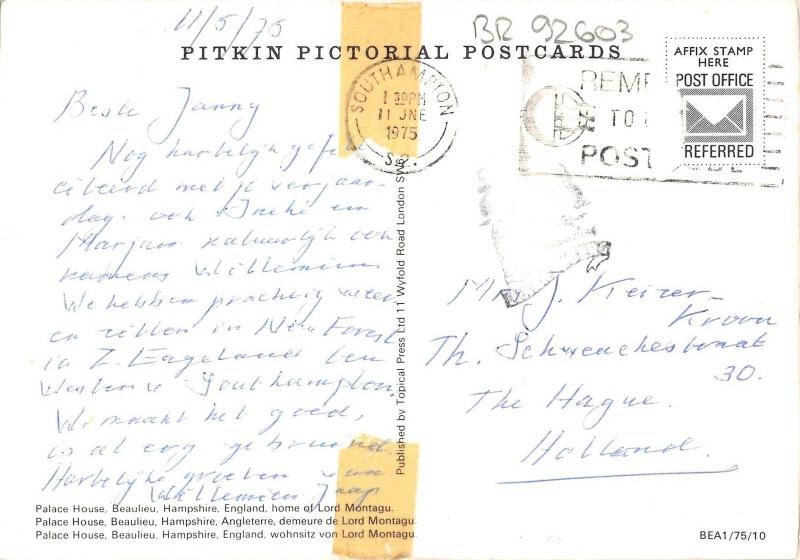 11/5/75
BR 92603
PITKIN PICTORIAL POSTCARDS
AFFIX STAMP
HERE
POST OFFICE
PREFERRED
SOUTHAMPTON
1 30PM
11 JNE
1975
S
REME
TO
POST
Beste Janny
Nog hartelijk gefeli
citeerd met je verjaar-
dag. ook Ineke en
Marjan natuurlijk ook
namens Willemien
We hebben prachtig weer
en zitten in New Forest
in Z. Engeland ten
Westen v Southampton.
We maakt het goed,
is al erg gebruind.
Hartelijke groeten van
Willemien Jaap
Published by Topical Press Ltd 11 Wyfold Road London SW6
J. Keizer-
Kroon
Th. Schwenckestraat
30.
The Hague.
Holland.
Palace House, Beaulieu, Hampshire, England, home of Lord Montagu.
Palace House, Beaulieu, Hampshire, Angleterre, demeure de Lord Montagu.
Palace House, Beaulieu, Hampshire, England, wohnsitz von Lord Montagu.
BEA1/75/10